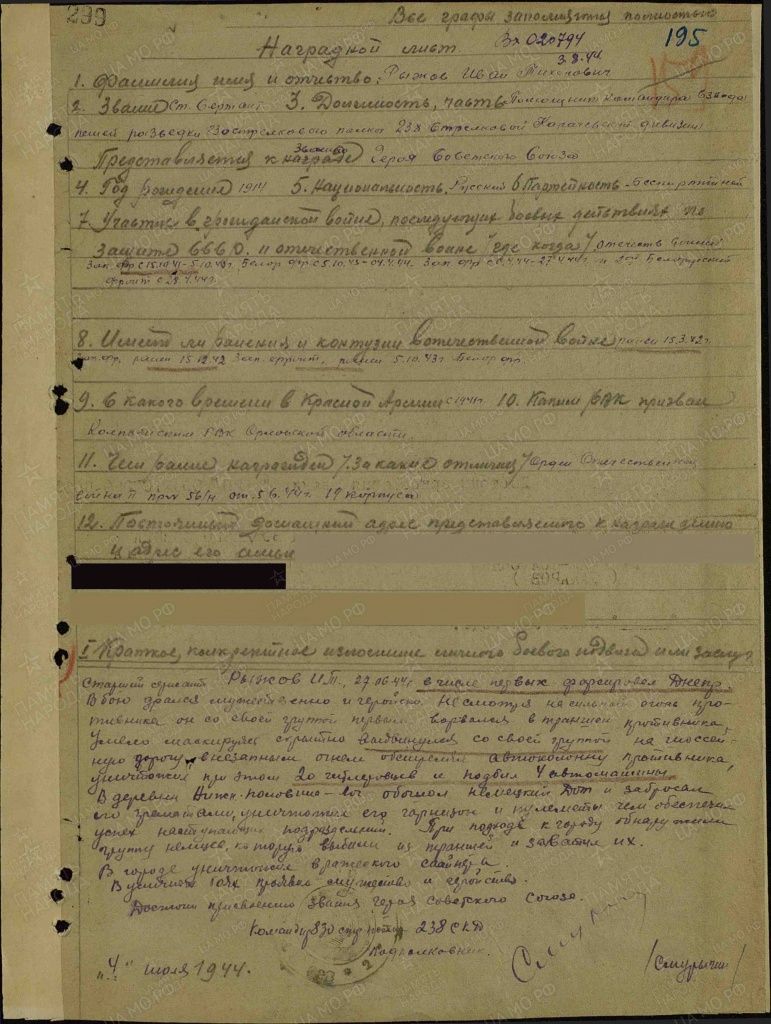 299
Все графы заполняются полностью
Наградной лист.
Вх 020794
3.8.44
195
1. Фамилия имя и отчество: Рыжов Иван Тихонович
2. Звание Ст. Сержант 3. Должность, часть Помощник командира взвода
пешей разведки стрелкового полка 238 Стрелковой Карачевской дивизии
Представляется к званию Героя Советского Союза
4. Год рождения 1914 5. Национальность Русский 6 Партейность Беспартийной
7. Участие в гражданской войне, последующих боевых действиях по
защите СССР. и отечественной войне (где когда)
фронт с
8. Имеет ли ранения и контузии в отечественной войне ранен 15.3.42г.
Зап. фр. ранен 15.12.42 Зап. фронт, ранен 5.10.43г. Белор. фр.
9. С какого времени в Красной Армии с 1941г. 10. Каким РВК призван
РВК Орловской области
11. Чем ранее награжден (за какие отличия) Орден Отечественной
войны II 19 корпуса
12. Постоянный домашний адрес представляемого к награждению
и адрес его семьи
I Краткое, конкретное изложение личного боевого подвига или заслуг
Старший сержант Рыжов И.Т., 27.06.44г. в числе первых форсировал Днепр.
В бою дрался мужественно и геройски. Несмотря на сильный огонь про-
тивника он со своей группой первым ворвался в траншеи противника,
Умело маскируясь скрытно выдвинулся со своей группой на шоссей-
ную дорогу внезапным огнем обстрелял автоколонну противника,
уничтожил при этом 20 гитлеровцев и подбил 4 автомашины.
В деревне обошел немецкий Дот и забросал
его гранатами, уничтожил его гарнизон и пулеметы чем обеспечил
успех наступающих подразделений. При подходе к городу обнаружили
группу немцев, которую выбили из траншей и их.
В городе уничтожил вражеского снайпера.
В уличных боях проявил мужество и геройство.
Достоин присвоения звания героя советского союза.
Командир 830 стр. полка 238 СКД
Подполковник.
"4" июля 1944г.